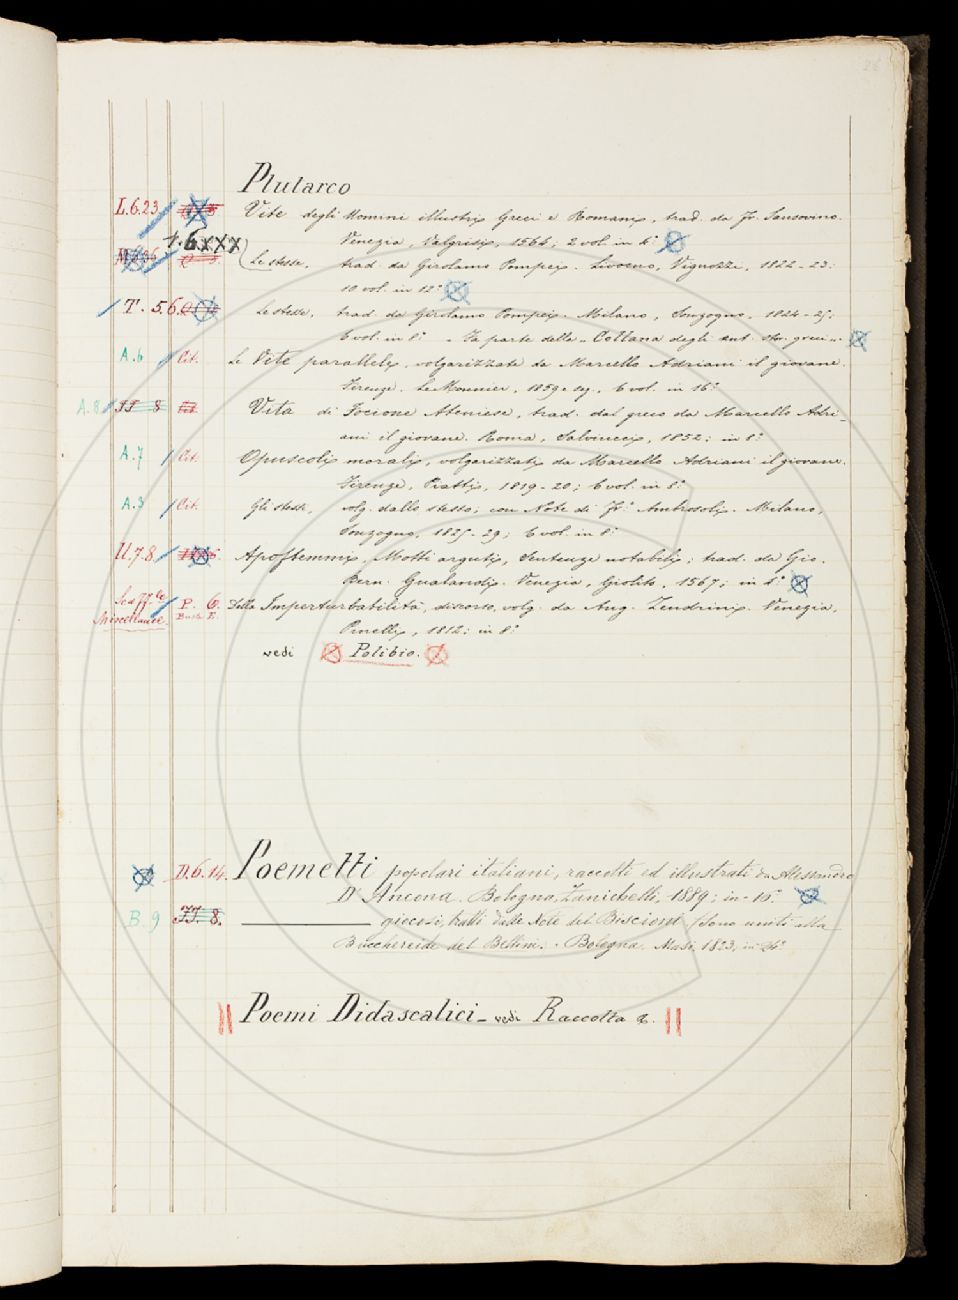 Plutarco
L.6.23 Vite degli Uomini illustri Greci e Romani, trad. da Fr. Sansovino.
Venezia, Valgrisi, 1564; 2 vol. in 4.°
t.6xxx
Le stesse, trad. da Girolamo Pompei. Livorno, Vignozzi, 1822-23:
10 vol. in 12.°
T. 5.6. Le stesse, trad. da Girolamo Pompei. Milano, Sonzogno, 1824-25.
6 vol. in 8.° - Fa parte della "Collana degli ant. stor. greci".
A.6 Cit. Le Vite parallele, volgarizzate da Marcello Adriani il giovane.
Firenze. Le Monnier, 1859 e seg. 6 vol. in 16.°
A.8 FF 8 Cit. Vita di Focione Ateniese, trad. dal greco da Marcello Adri-
ani il giovane. Roma, Salviucci, 1852; in 8.°
A.7 Cit. Opuscoli morali, volgarizzati da Marcello Adriani il giovane.
Firenze, Piatti, 1819-20; 6 vol. in 8.°
A.3 Cit. Gli stessi, volg. dallo stesso; con Note di Fr. Ambrosoli. Milano,
Sonzogno, 1825-29; 6 vol. in 8.°
U.7.8 Apoftemmi, Motti arguti, Sentenze notabili; trad. da Gio.
Bern. Gualandi. Venezia, Giolito, 1567; in 4.°
Miscellanee. P. 6. Busta E. Della Imperturbabilità, discorso, volg. da Aug. Zendrini. Venezia,
Pinelli, 1812; in 8.°
vedi Polibio.
D.6.14. Poemetti popolari italiani, raccolti ed illustrati da Alessandro
D'Ancona. Bologna, Zanichelli, 1889; in-16.°
B.9 FF. 8. ——— giocosi, tratti dalle Note del Biscioni (Sono uniti alla
Bucchereide del Bellini. - Bologna, Masi, 1823, in 24.°
Poemi Didascalici - vedi Raccolta &.